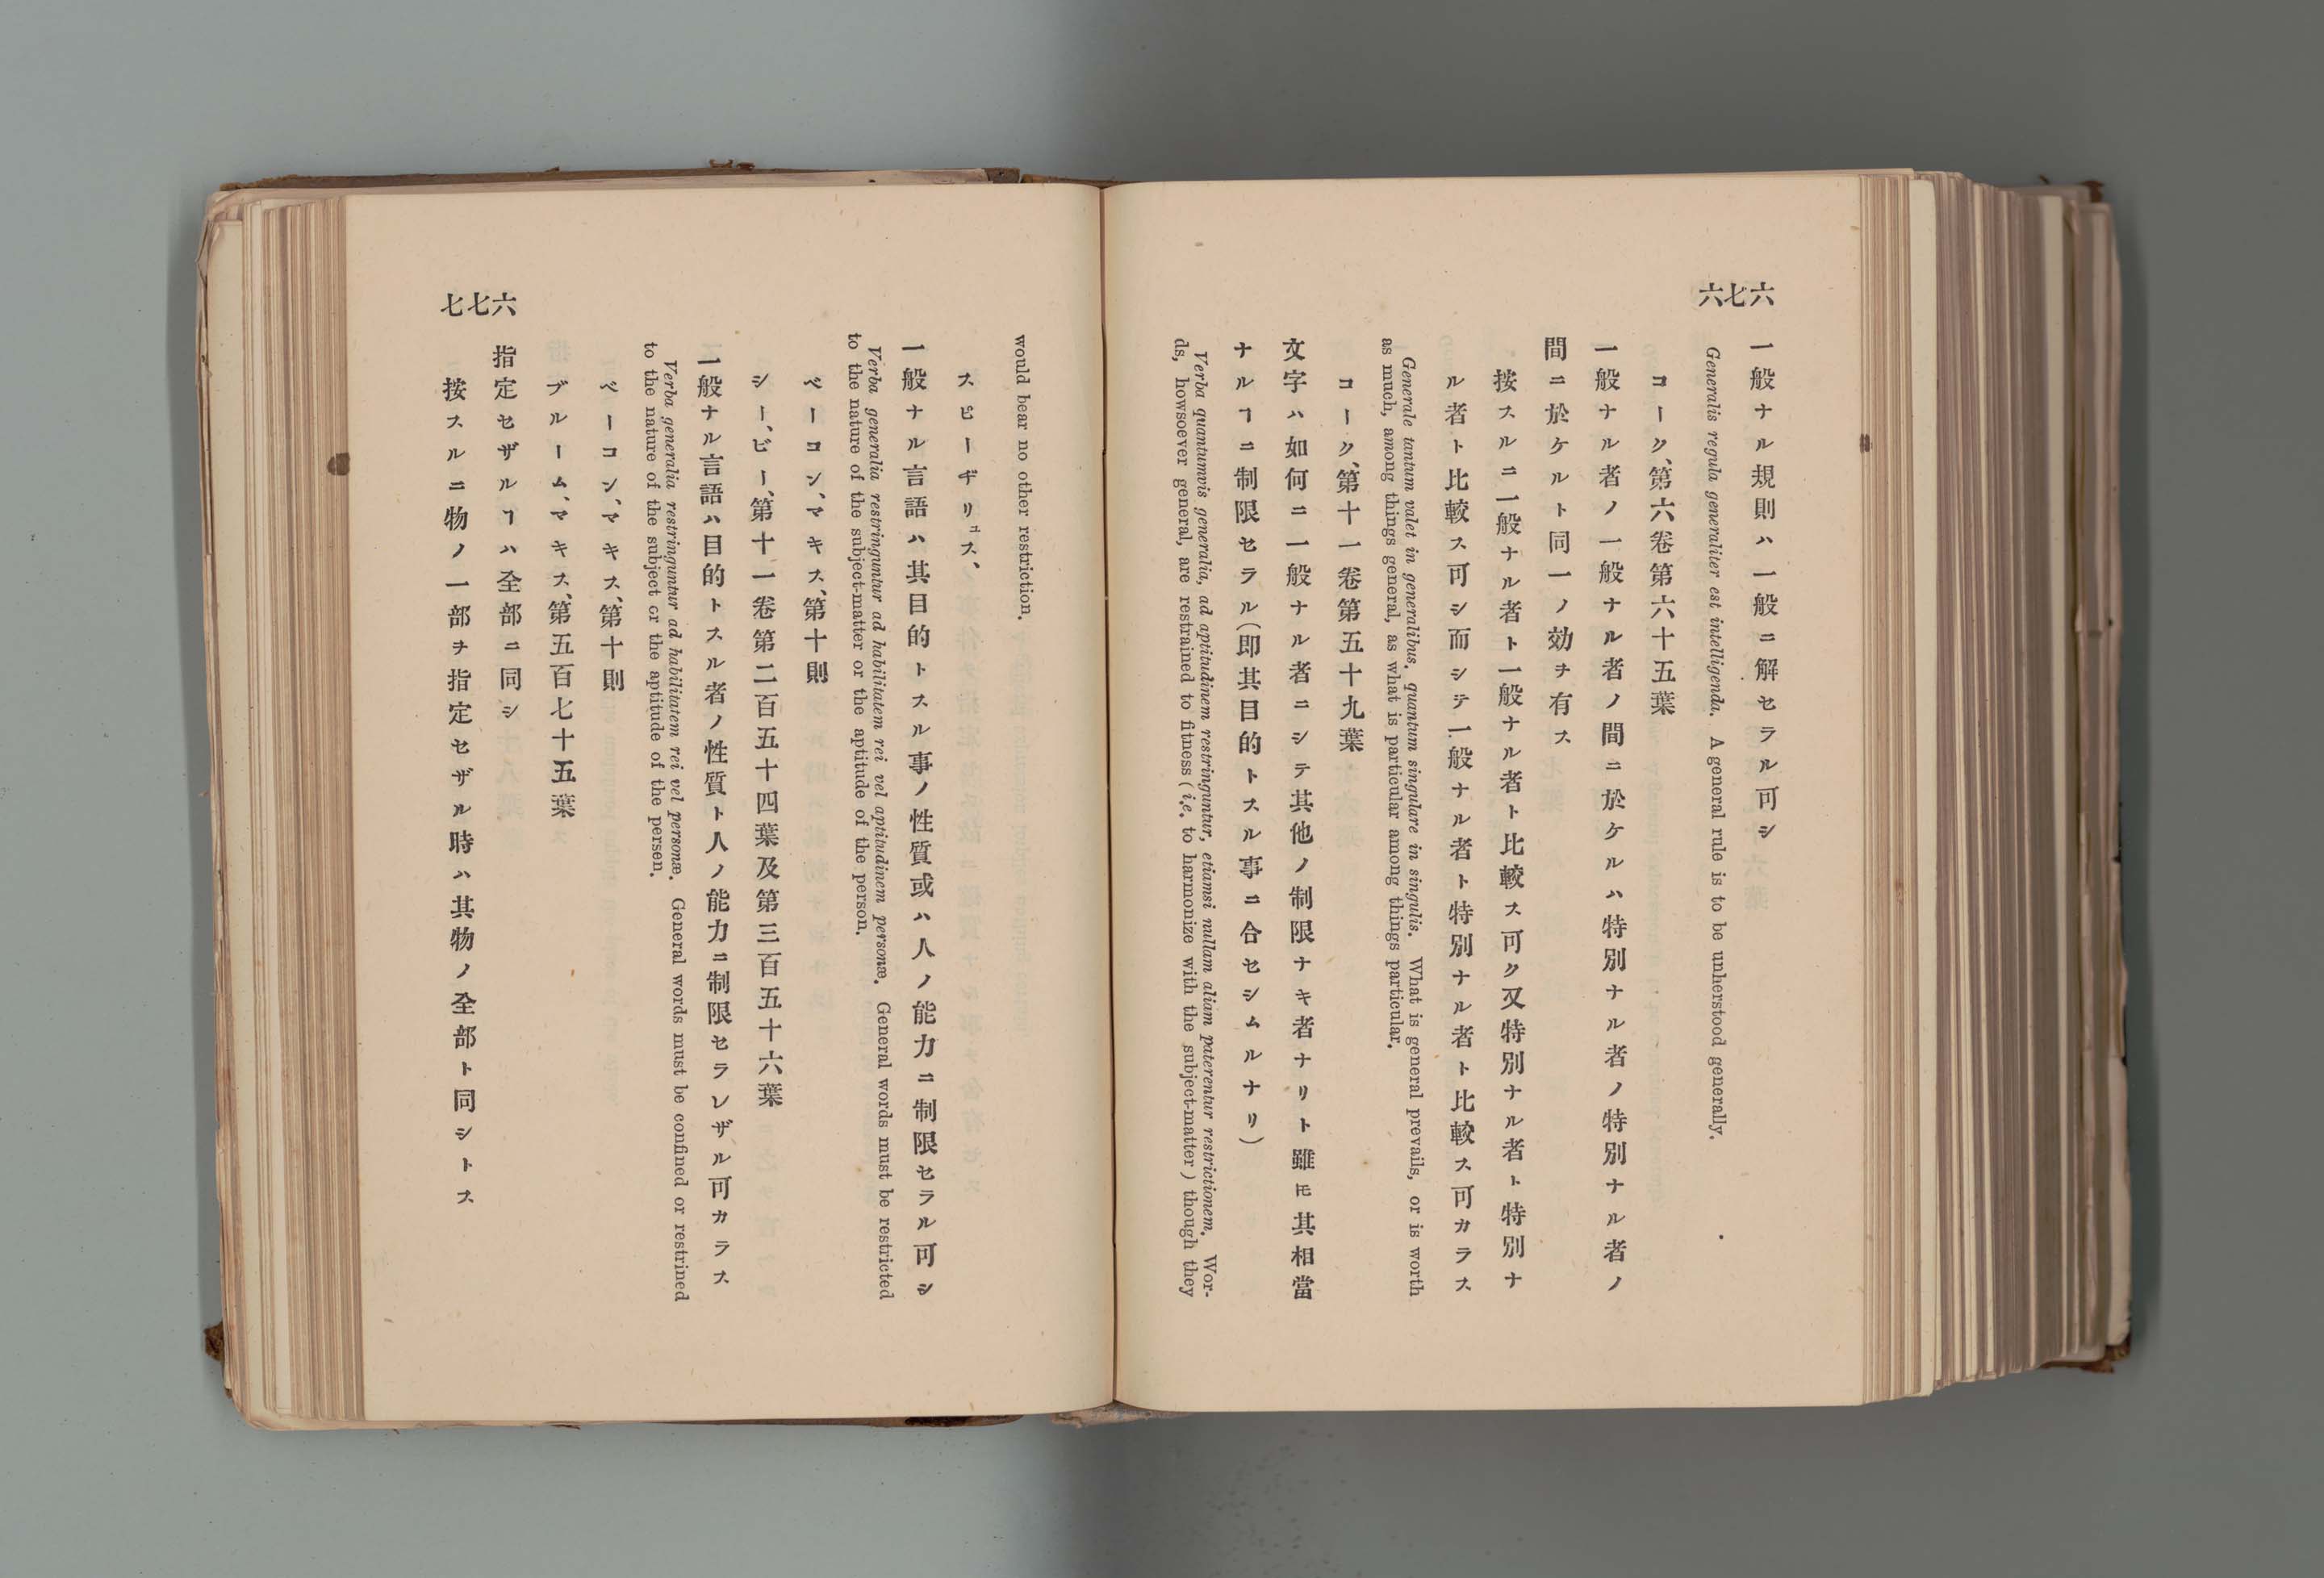 六七六
一般ナル規則ハ一般ニ解セラル可シ
Generalis regula generaliter est intelligenda. A general rule is to be unherstood generally.
コーク、第六卷第六十五葉
一般ナル者ノ一般ナル者ノ間ニ於ケルハ特別ナル者ノ特別ナル者ノ
間ニ於ケルト同一ノ効ヲ有ス
按スルニ一般ナル者ト一般ナル者ト比較ス可ク又特別ナル者ト特別ナ
ル者ト比較ス可シ而シテ一般ナル者ト特別ナル者ト比較ス可カラス
Generale tantum valet in generalibus, quantum singulare in singulis. What is general prevails, or is worth
as much, among things general, as what is particular among things particular.
コーク、第十一卷第五十九葉
文字ハ如何ニ一般ナル者ニシテ其他ノ制限ナキ者ナリト雖𪜈其相當
ナルヿニ制限セラル(即其目的トスル事ニ合セシムルナリ)
Verba quantumvis generalia, ad aptitudinem restringuntur, etiamsi nullam aliam paterentur restrictionem. Wor-
ds, howsoever general, are restrained to fitness (i.e. to harmonize with the subject-matter) though they
would bear no other restriction.
スピーギリュス、
一般ナル言語ハ其目的トスル事ノ性質或ハ人ノ能力ニ制限セラル可シ
Verba generalia restringuntur ad habilitatem rei vel aptitudinem personæ. General words must be restricted
to the nature of the subject-matter or the aptitude of the person.
ベーコン、マキス、第十則
シー、ビー、第十一卷第二百五十四葉及第三百五十六葉
一般ナル言語ハ目的トスル者ノ性質ト人ノ能力ニ制限セラレザル可カラス
Verba generalia restringuntur ad habilitatem rei vel personæ. General words must be confined or restrined
to the nature of the subject or the aptitude of the persen.
ベーコン、マキス、第十則
ブルーム、マキス、第五百七十五葉
指定セザルヿハ全部ニ同シ
按スルニ物ノ一部ヲ指定セザル時ハ其物ノ全部ト同シトス
六七七